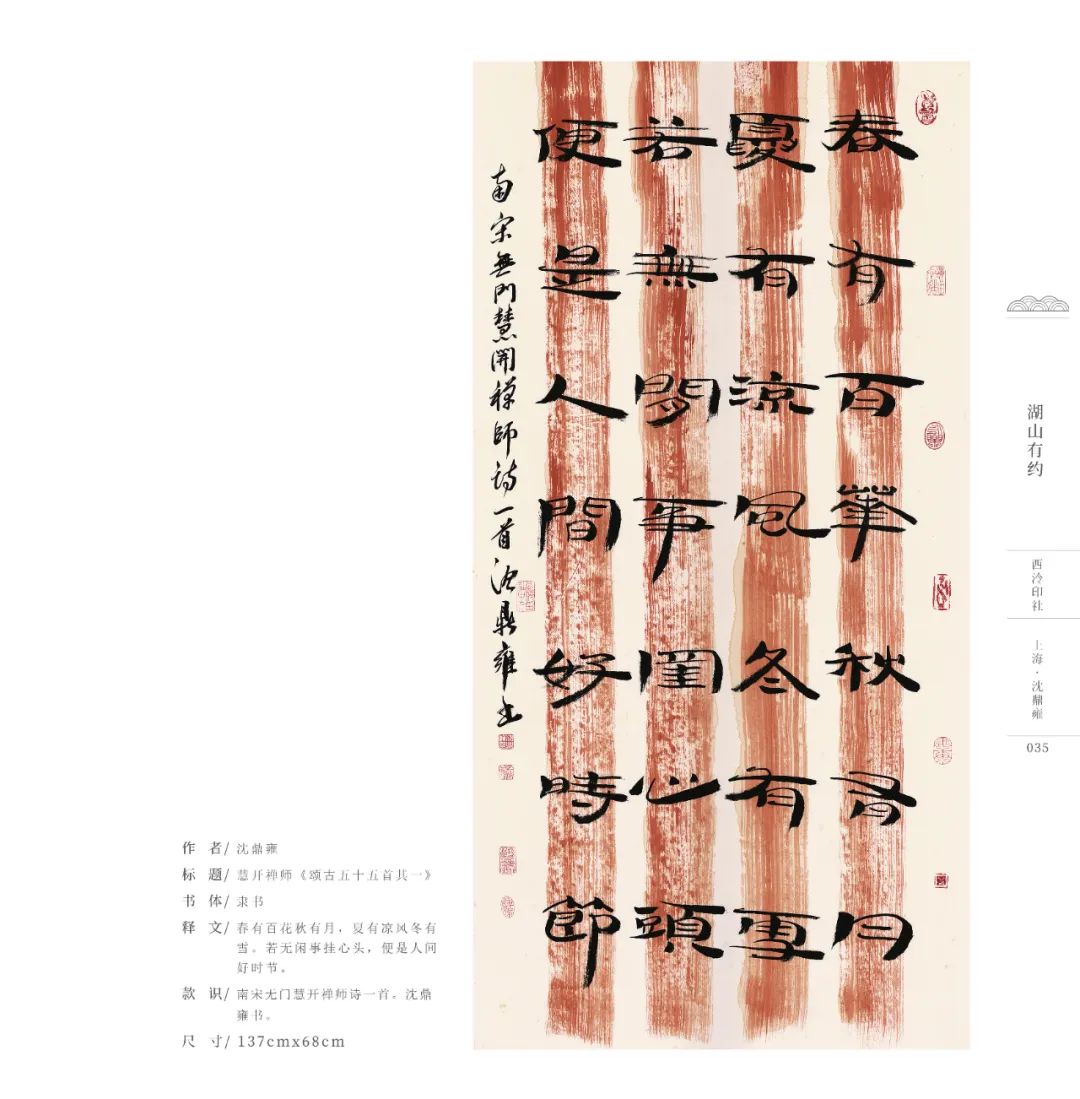 春有百華秋有月
夏有涼風冬有雪
若無閒事罣心頭
便是人間好時節
南宋無門慧開禪師詩一首沈鼎雍书
作 者/ 沈鼎雍
标 题/ 慧开禅师《颂古五十五首其一》
书 体/ 隶书
释 文/ 春有百花秋有月，夏有凉风冬有
雪。若无闲事挂心头，便是人间
好时节。
款 识/ 南宋无门慧开禅师诗一首。沈鼎
雍书。
尺 寸/ 137cmx68cm
湖山有约
西泠印社
上海·沈鼎雍
035